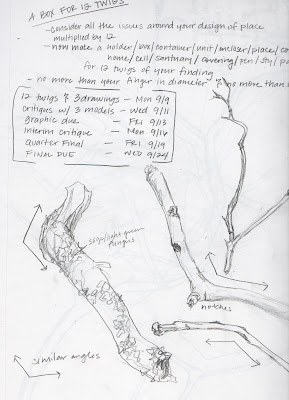 A BOX FOR 12 TWIGS
-consider all the issues around your design of place
multiplied by 12
-now make a holder/box/container/unit/encloser/place/
home/cell/sanctuary/covering/pen/sty/
for 12 twigs of your finding
- no more than your finger in diameter & no more than
12 twigs & 3 drawings - Mon 9/9
critique w/ 3 models - Wed 9/11
graphic due - FRI 9/13
Interim critique - Mon 9/16
Quarter Final - FRI 9/19
FINAL DUE - WED 9/24
light green
fungus
notches
similar angles